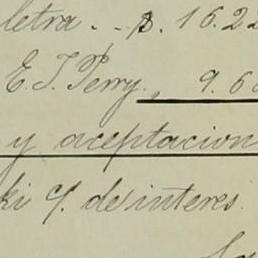 letra . . $. 16.22
E. T. Perry. „ 9.60
y aceptacion
ki %. de interes.